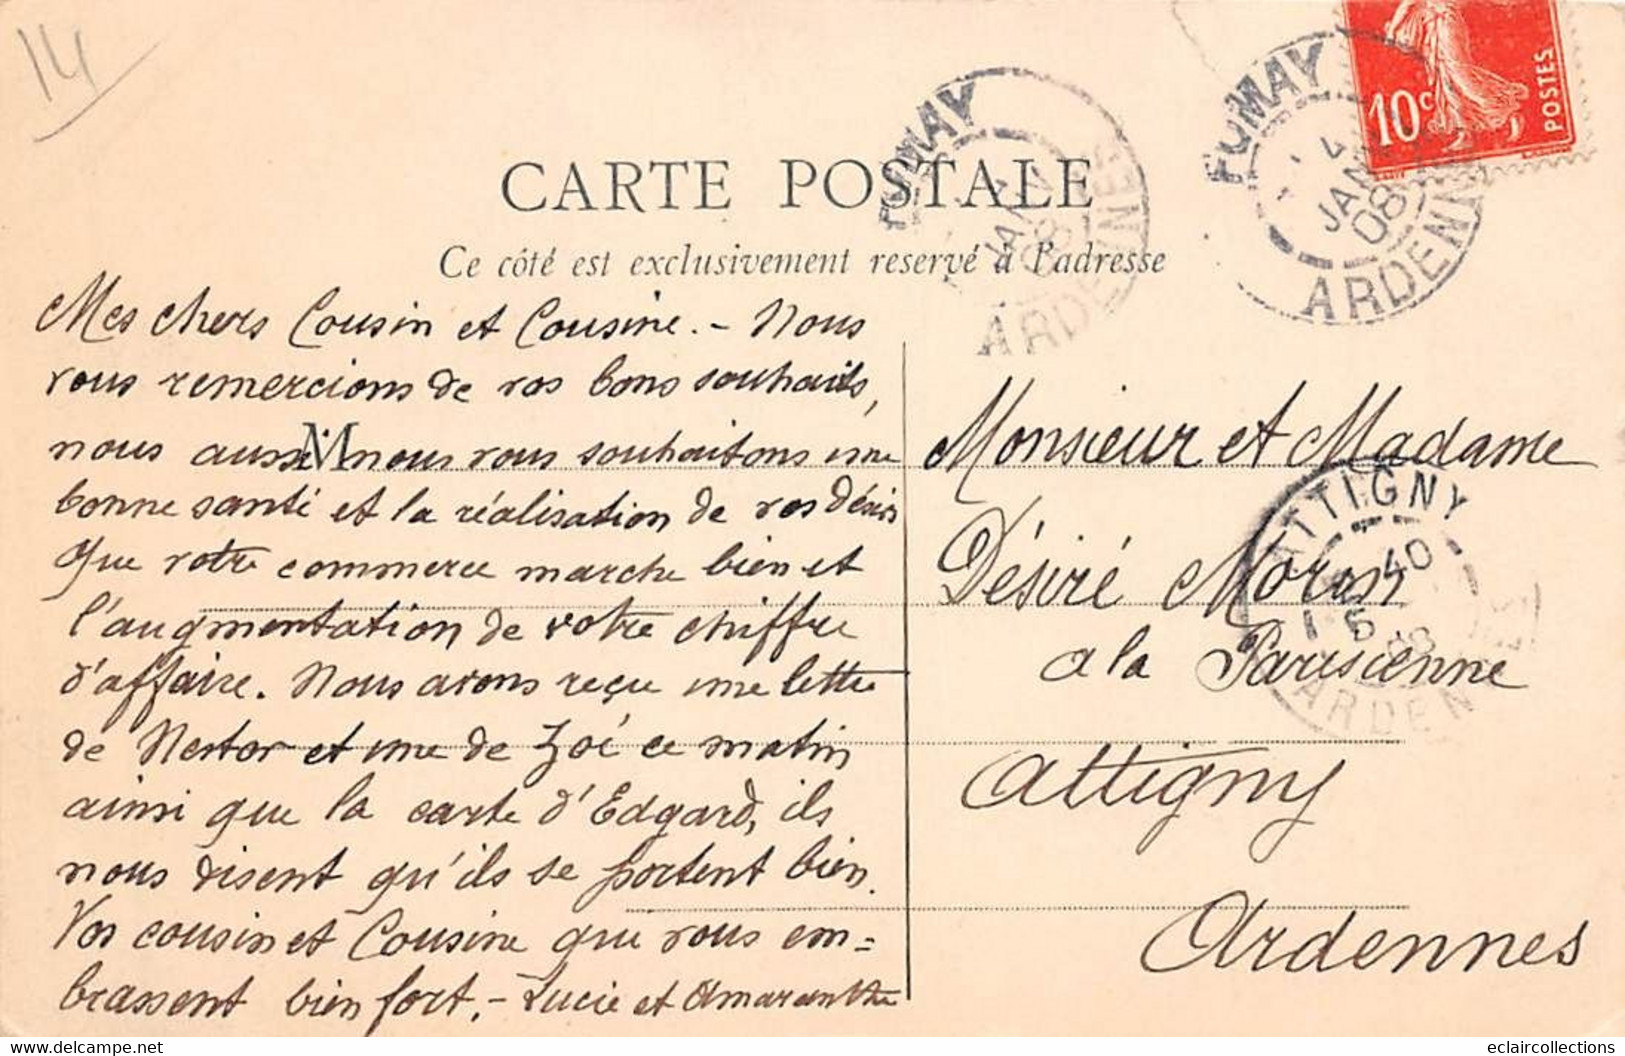 14
FUMAY
JANV
08
ARDENNES
FUMAY
4
JANV
08
ARDENNES
10c
POSTES
CARTE POSTALE
Ce côté est exclusivement reservé à l'adresse
Mes chers Cousin et Cousine. - Nous
vous remercions de vos bons souhaits,
nous aussi nous vous souhaitons une
bonne santé et la réalisation de vos désirs
que votre commerce marche bien et
l'augmentation de votre chiffre
d'affaire. Nous avons reçu une lettre
de Nestor et une de Zoé ce matin
ainsi que la carte d'Edgard, ils
nous disent qu'ils se portent bien.
Vos cousin et Cousine que vous em=
brassent bien fort. - Lucie et Amaranthe
M
Monsieur et Madame
Désiré Moron
a la Parisienne
Attigny
Ardennes
ATTIGNY
40
5
08
ARDENNES
Delcampe.net
eclaircollections